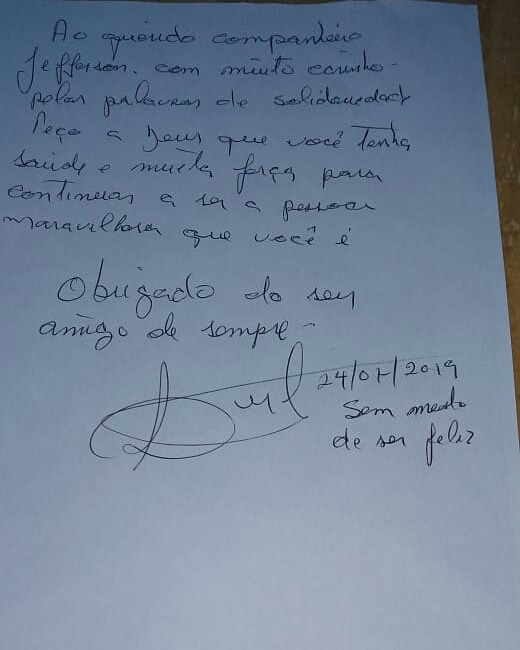 Ao querido companheiro
Jefferson. com muito carinho
pelas palavras de solidariedade
Peço a Deus que você tenha
saúde e muita força para
continuar a ser a pessoa
maravilhosa que você é
Obrigado do seu
amigo de sempre -
24/07/2019
Sem medo
de ser feliz